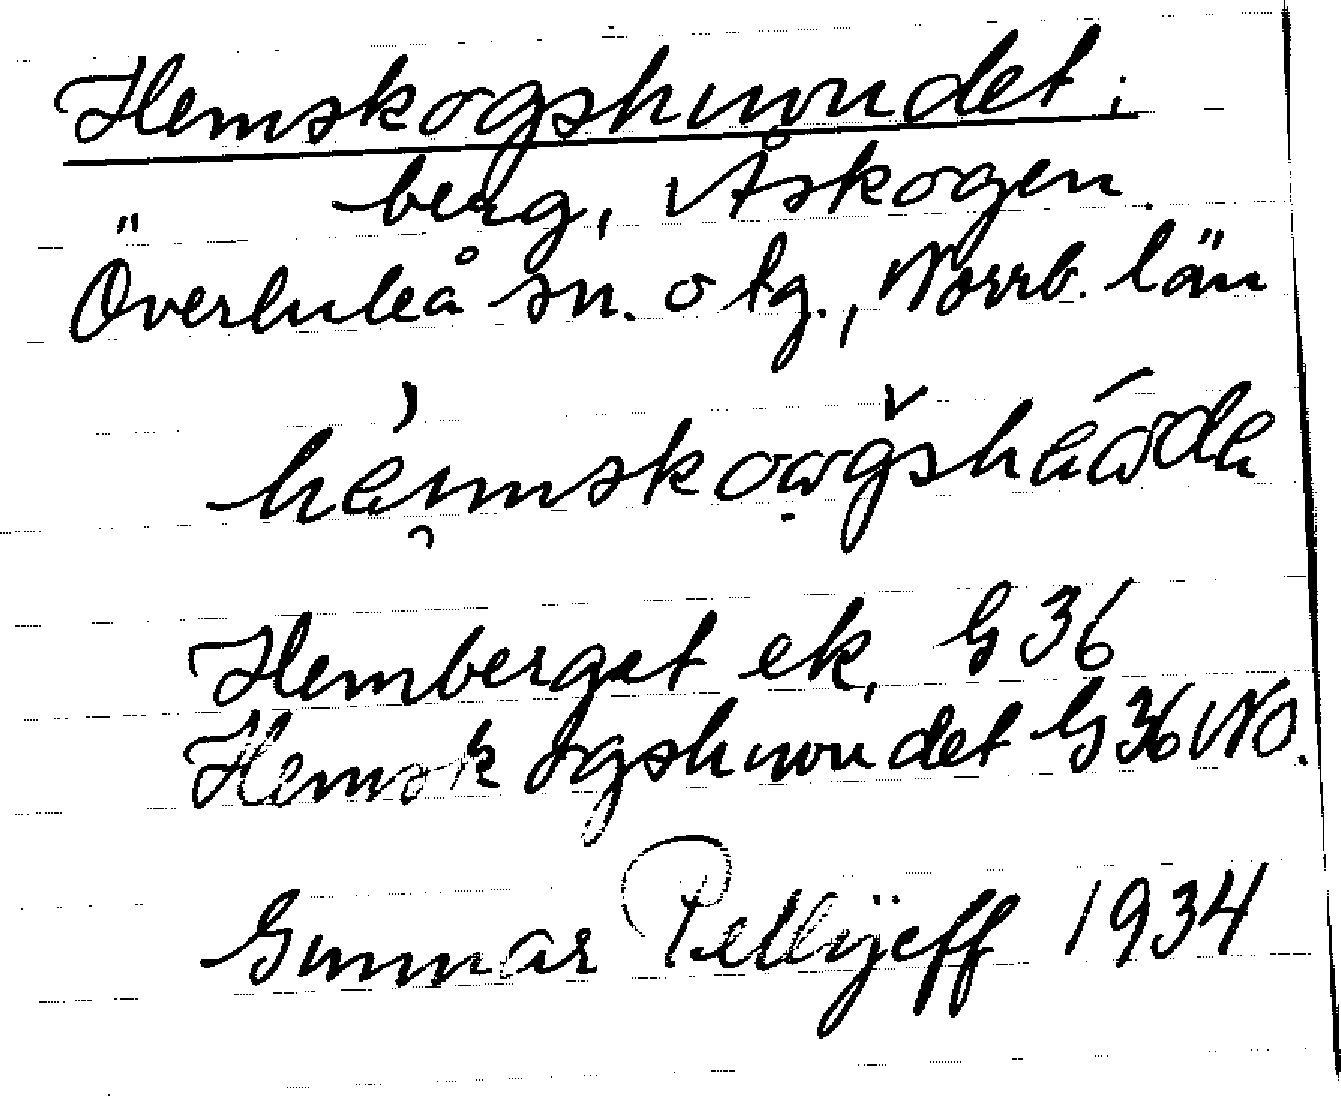 Hemskogshuvudet:
berg, Åskogen.
Överluleå sn. o tg., Norrb. län
Hemberget ek, G 36
Hemskogshuvudet G 36 NO.
Gunnar Pellijeff 1934